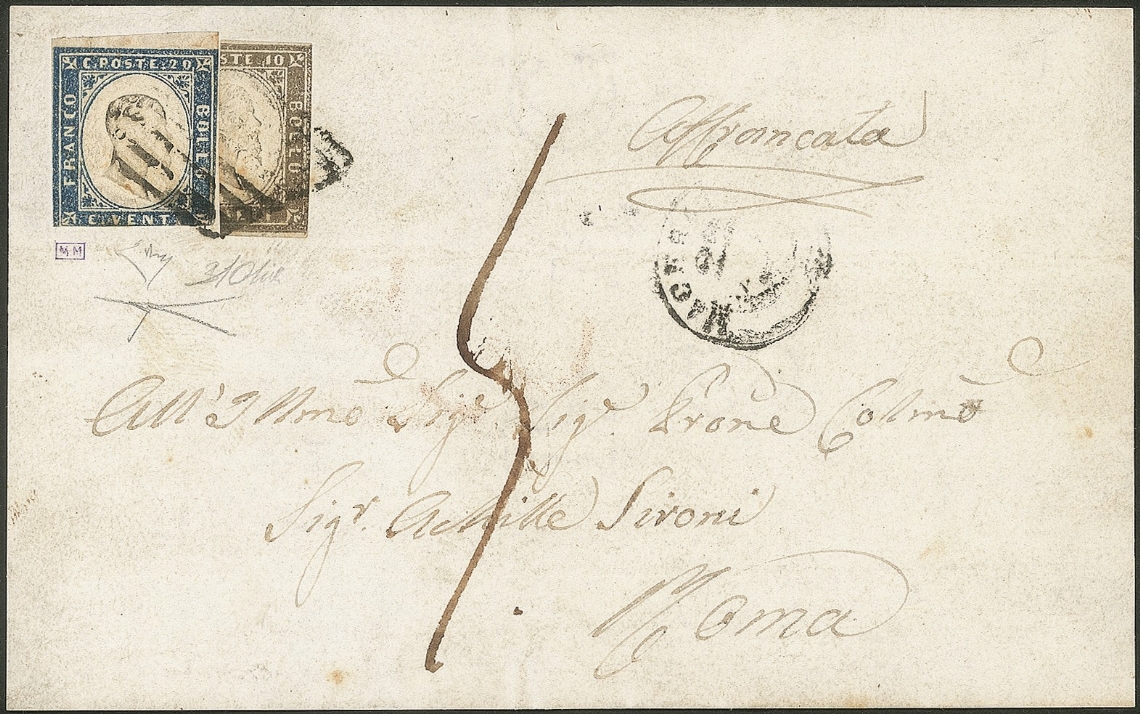 C. POSTE. 20
FRANCO
BOLLO
C. VENTI
STE 10
BOLLO
MM
Affrancata
MACERA
All'Illmo Sigr Sigr Prone Colmo
Sigr. Achille Sironi
Roma